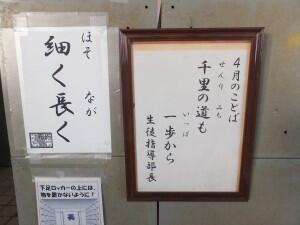 ４月のことば
せんり みち
千里の道も
いっぽ
一歩から
生徒指導部長
ほそ なが
細く長く
下足ロッカーの上には、
物を置かないように！